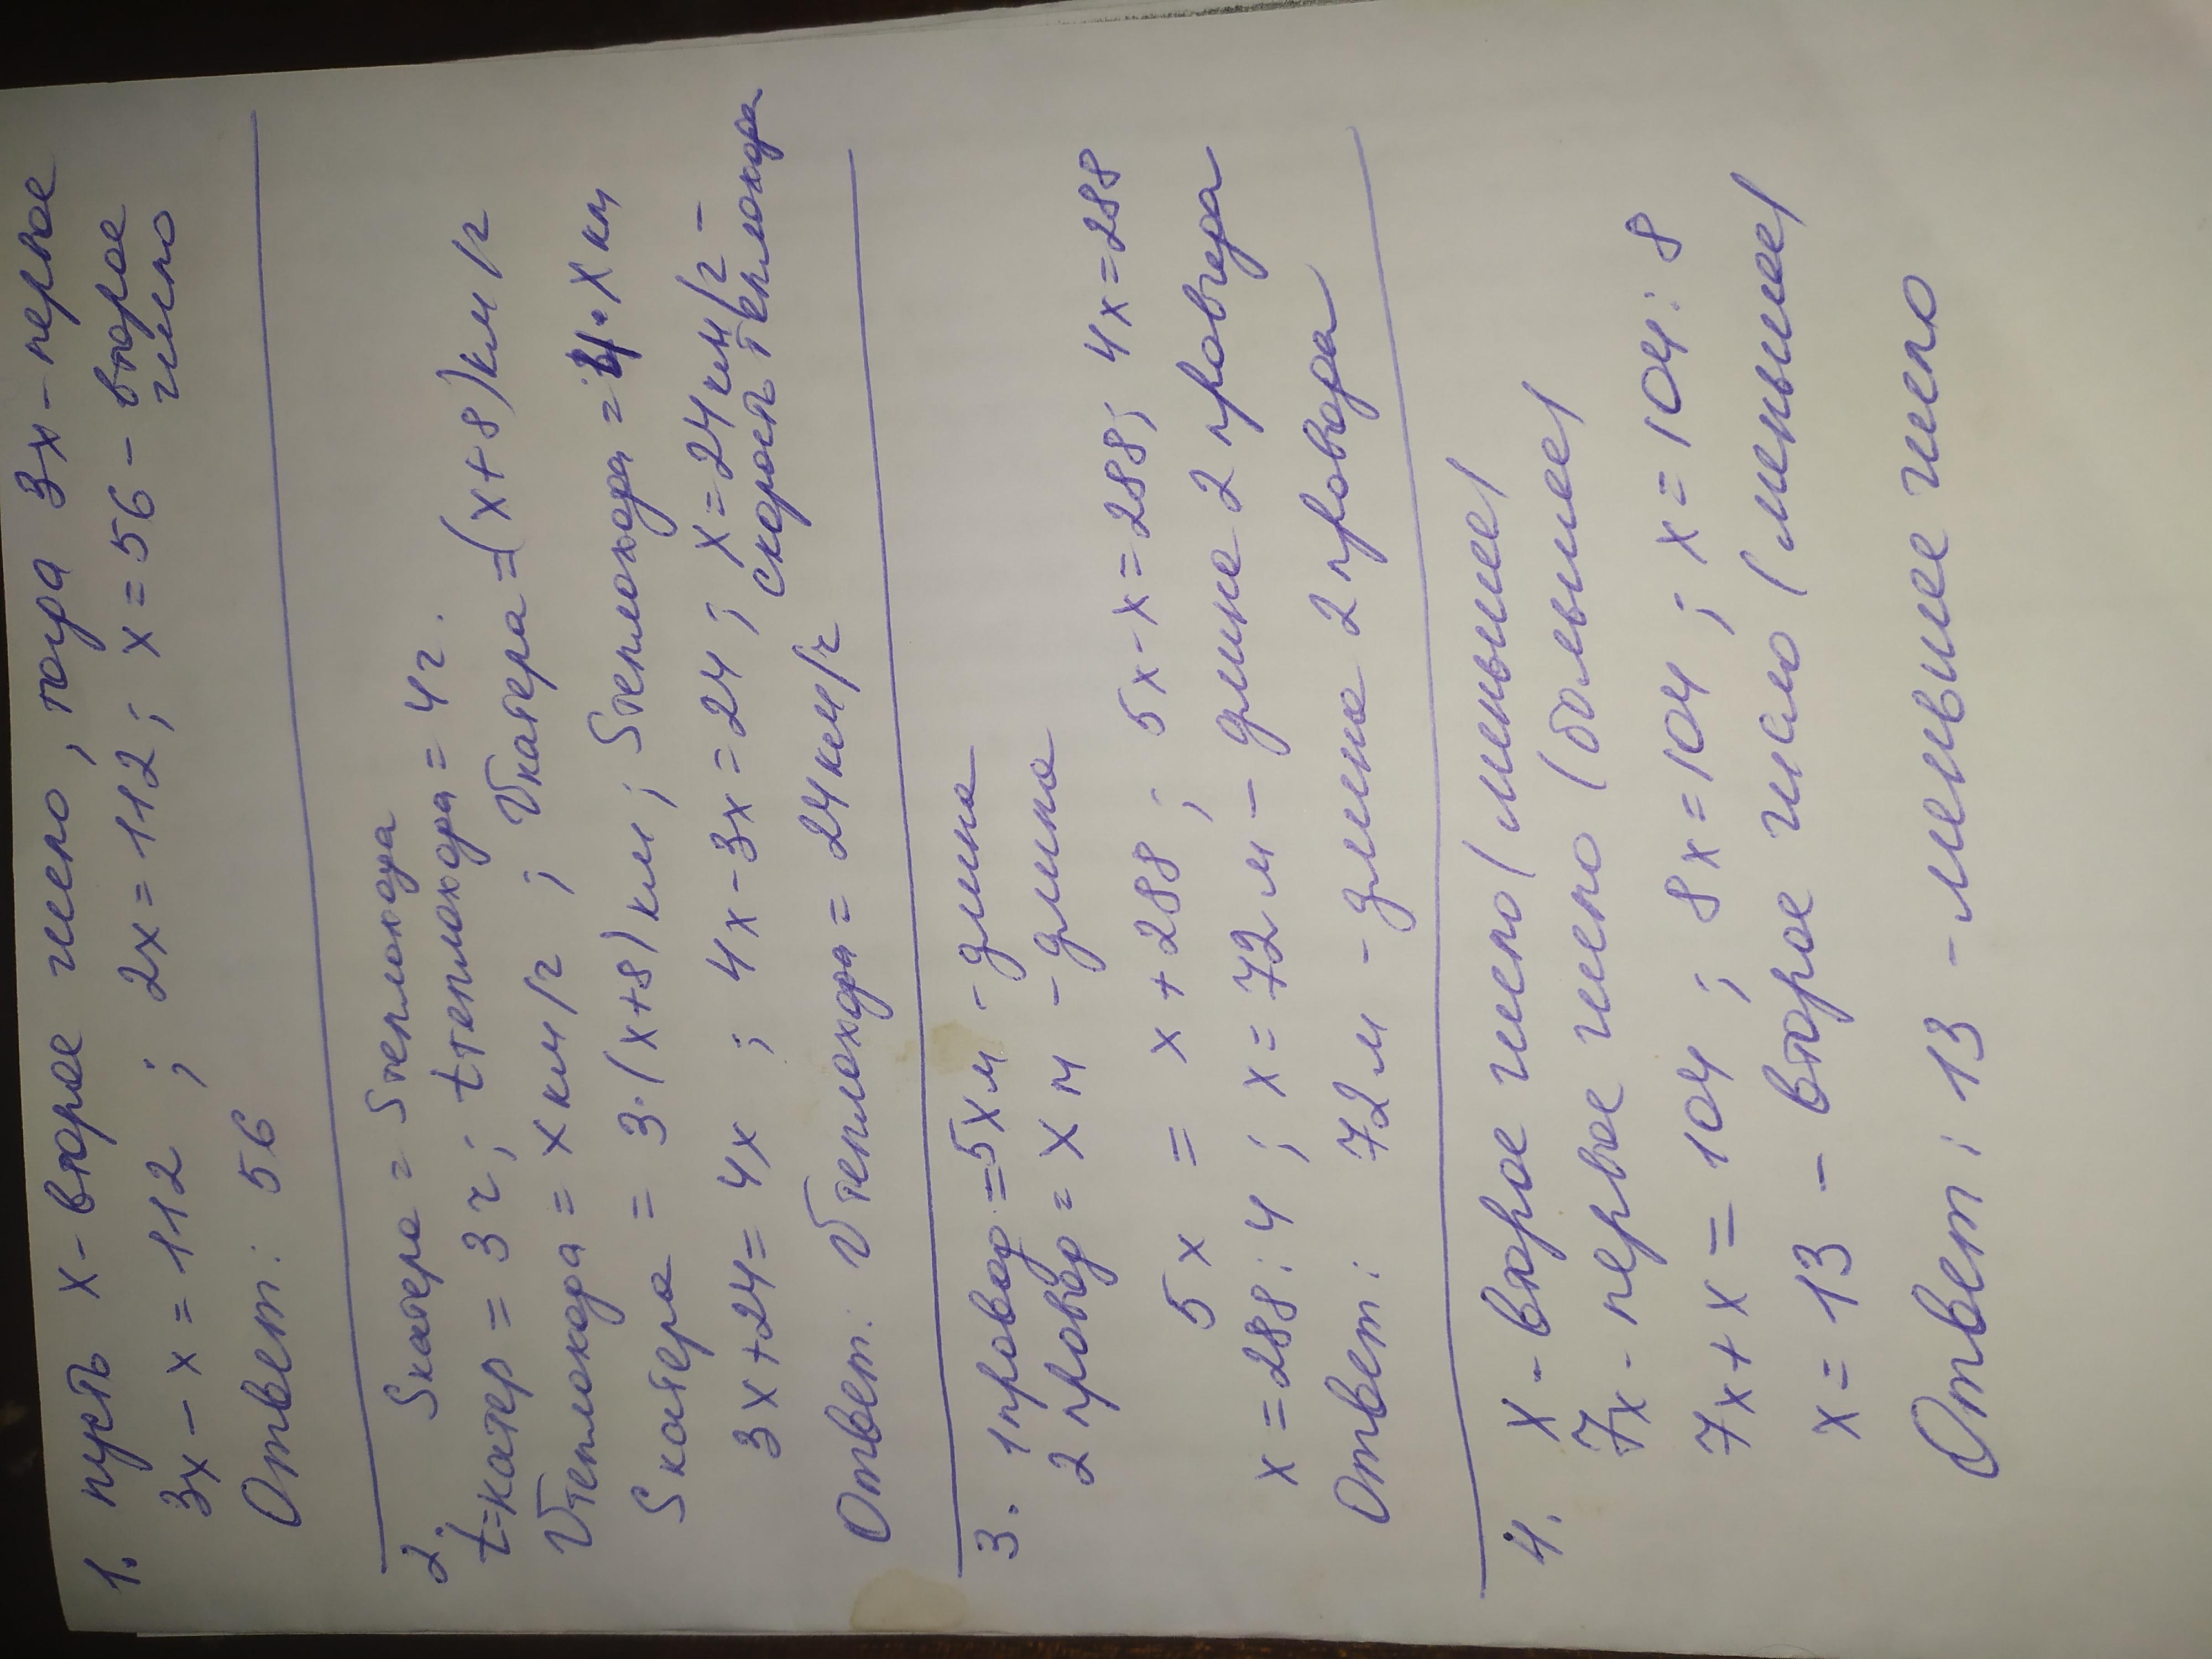 1. пусть x - второе число, тогда 3x - первое
3x - x = 112 ; 2x = 112 ; x = 56 - второе число
Ответ: 56
2. Sкатера = Sтеплохода
t=катер = 3ч ; tтеплохода = 4ч.
Vтеплохода = x км/ч ; Vкатера = (x+8) км/ч
Sкатера = 3·(x+8) км ; Sтеплохода = 4·x км
3x+24 = 4x ; 4x - 3x = 24 ; x = 24 км/ч -
скорость теплохода
Ответ: Vтеплохода = 24 км/ч
3. 1 провод = 5x м - длина
2 провод = x м - длина
5x = x + 288 ; 5x - x = 288 ; 4x = 288
x = 288 : 4 ; x = 72 м - длине 2 провода
Ответ: 72 м - длина 2 провода
4. x - второе число (меньшее)
7x - первое число (большее)
7x + x = 104 ; 8x = 104 ; x = 104 : 8
x = 13 - второе число (меньшее)
Ответ: 13 - меньшее число